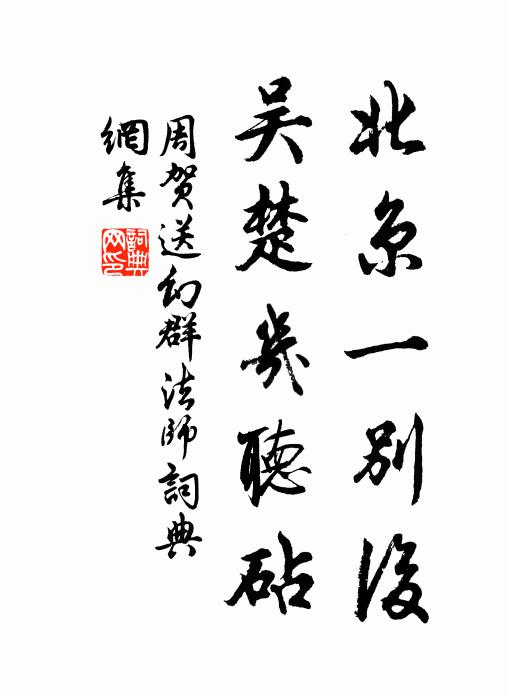 北京一別後
吴楚幾聽砧
周贺送幻群法師詞典
網集
詞典網印